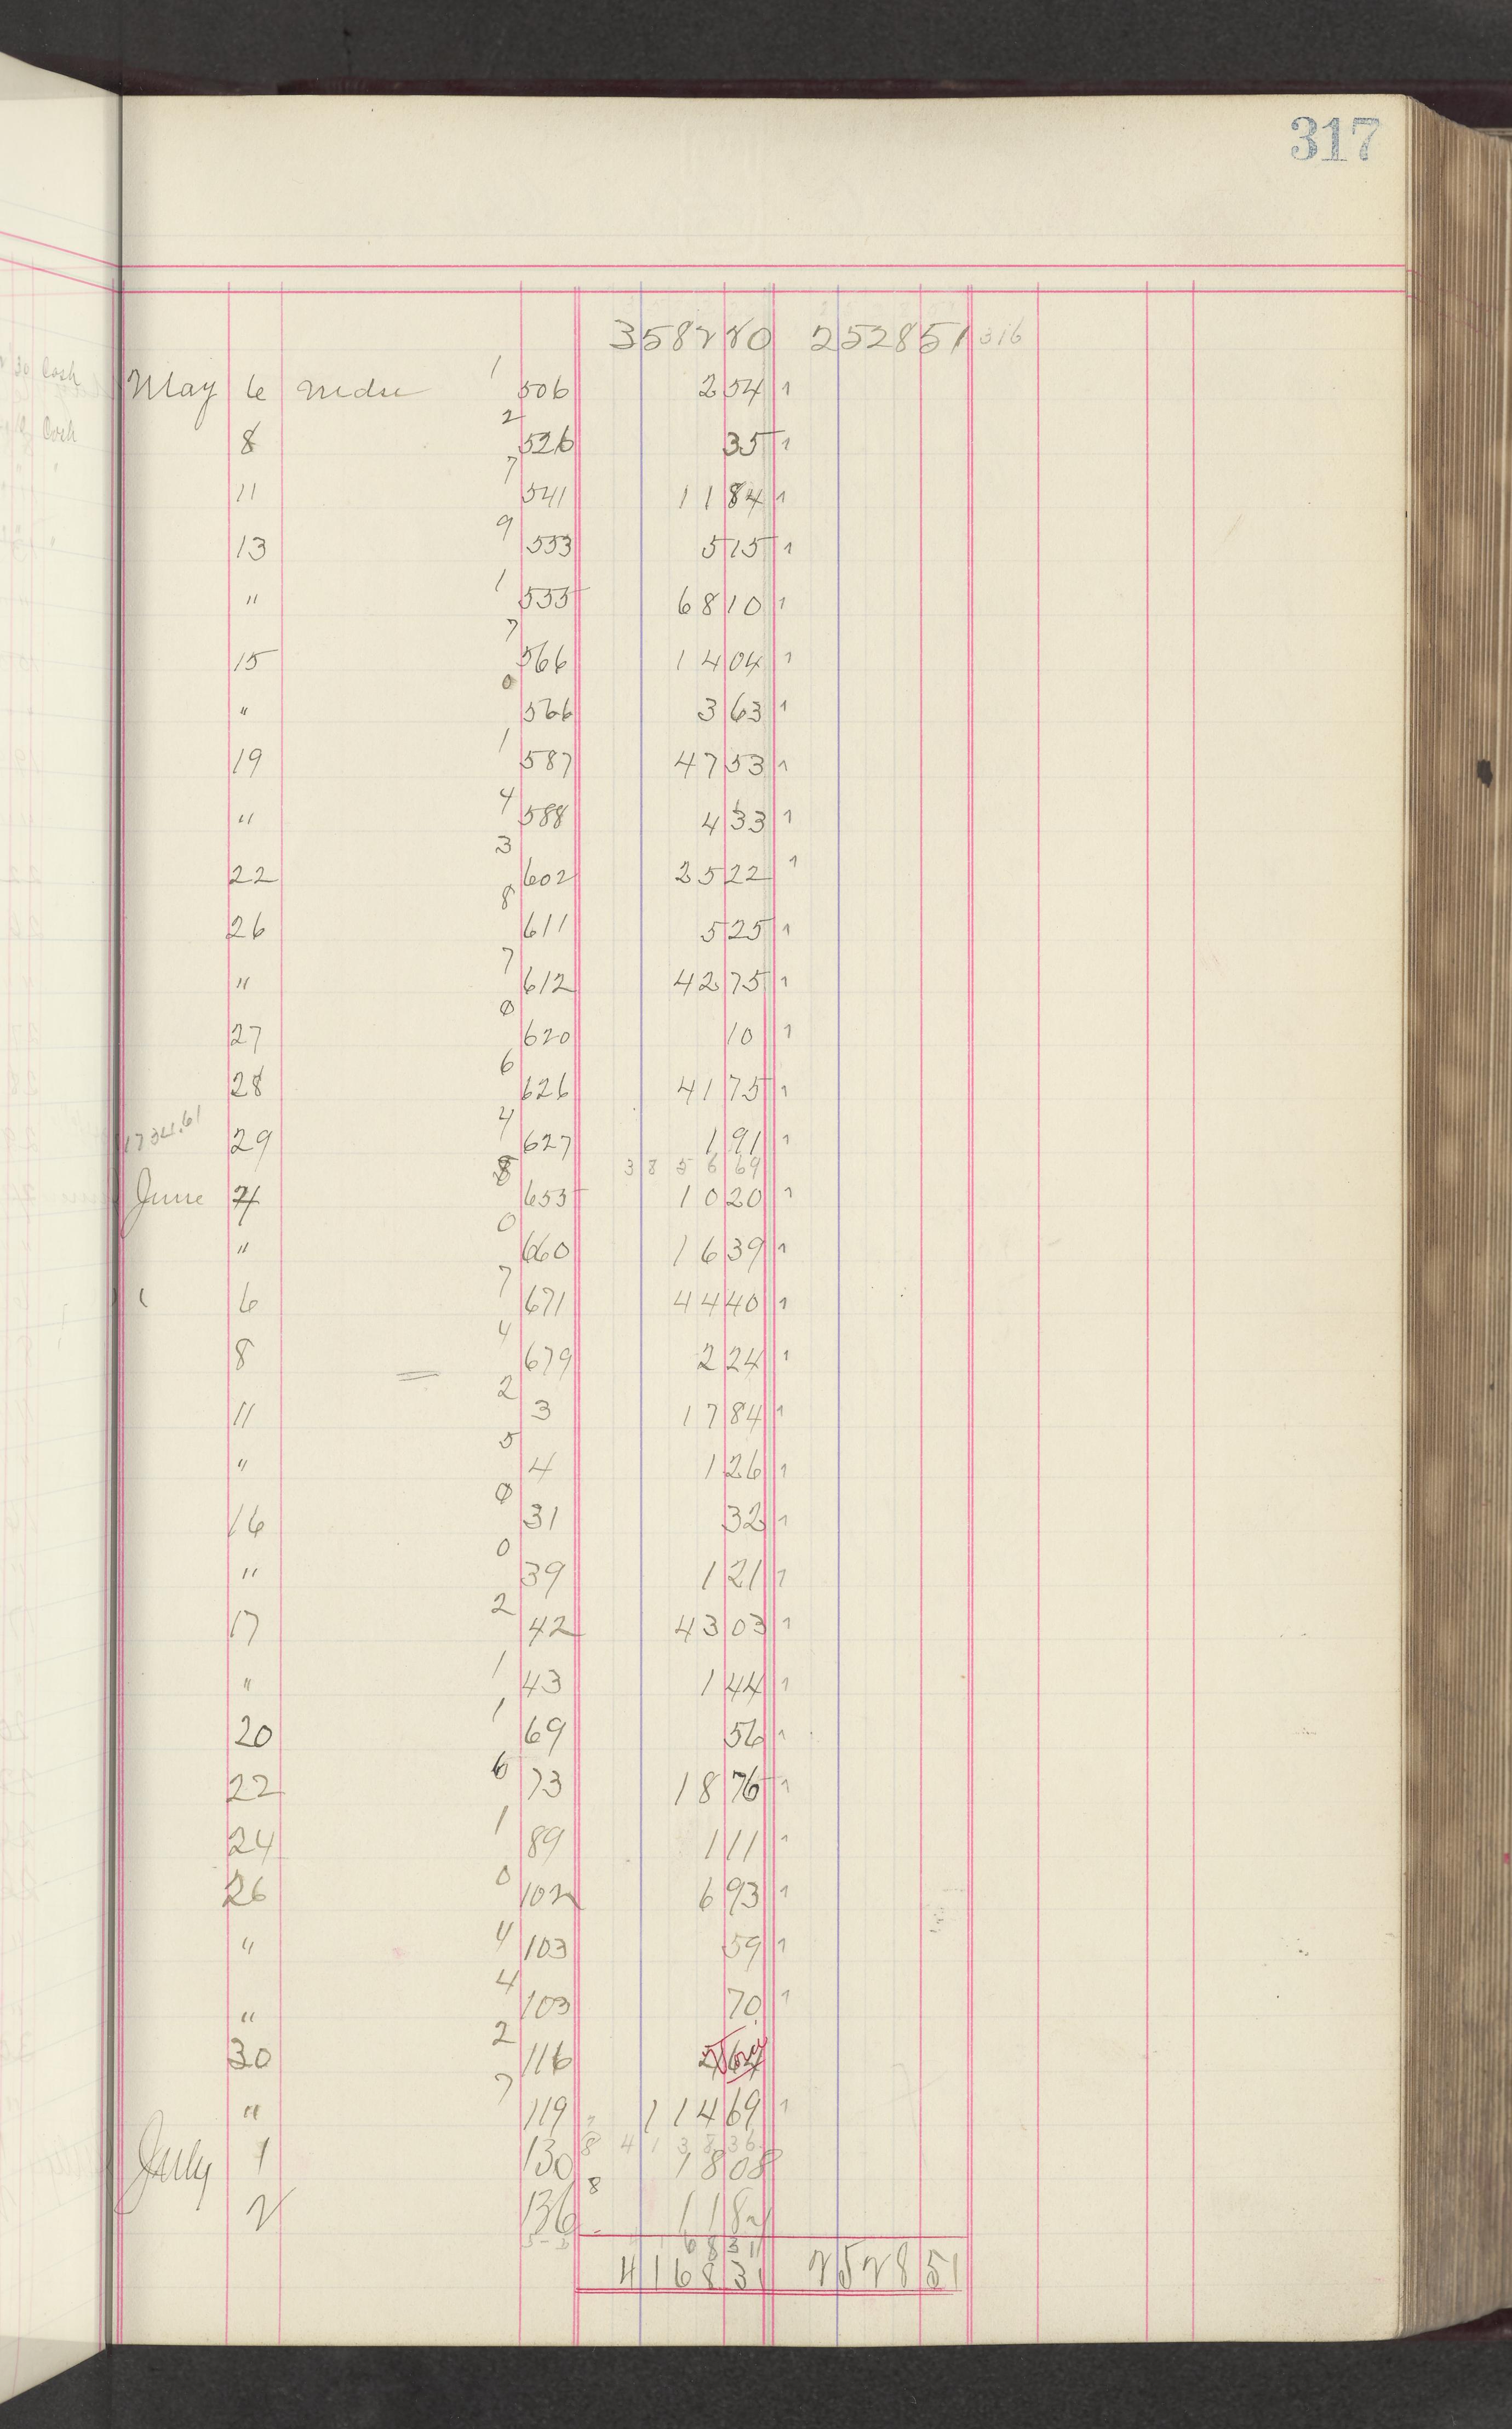 317
358280 252851 316
May 6 mdse 1 506 254
8 2 526 35
11 7 541 1184
13 9 553 515
" 1 555 6810
15 7 566 1404
" 0 566 363
19 1 587 4753
" 4 588 433
22 3 602 2522
26 8 611 525
" 7 612 4275
27 0 620 10
28 6 626 4175
1734.61 29 4 627 191
385669
June 4 8 655 1020
" 0 660 1639
6 7 671 4440
8 4 679 224
11 2 3 1784
" 5 4 126
16 0 31 32
" 0 39 121
17 2 42 4303
" 1 43 144
20 1 69 56
22 6 73 1876
24 1 89 111
26 0 102 693
" 4 103 59
" 4 103 70
30 2 116
" 7 119 11469
413836
July 1 8 130 1808
2 8 136 1182
6831
416831 252851